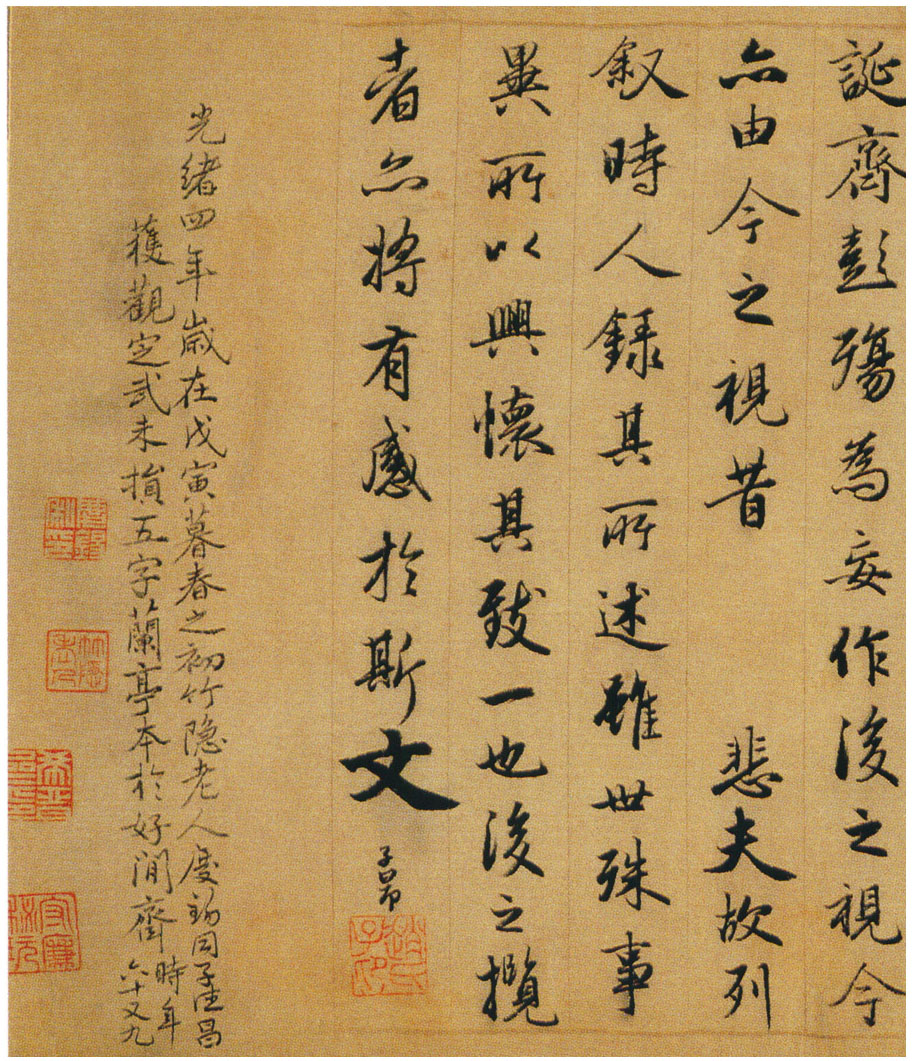 誕齊彭殤為妄作後之視今
亦由今之視昔 悲夫故列
敘時人錄其所述雖世殊事
異所以興懷其致一也後之攬
者亦將有感於斯文
子昂
趙氏子昂
光緒四年歲在戊寅暮春之初竹隱老人慶錫同子連昌
獲觀定武未損五字蘭亭本於好閒齋時年
六十又九